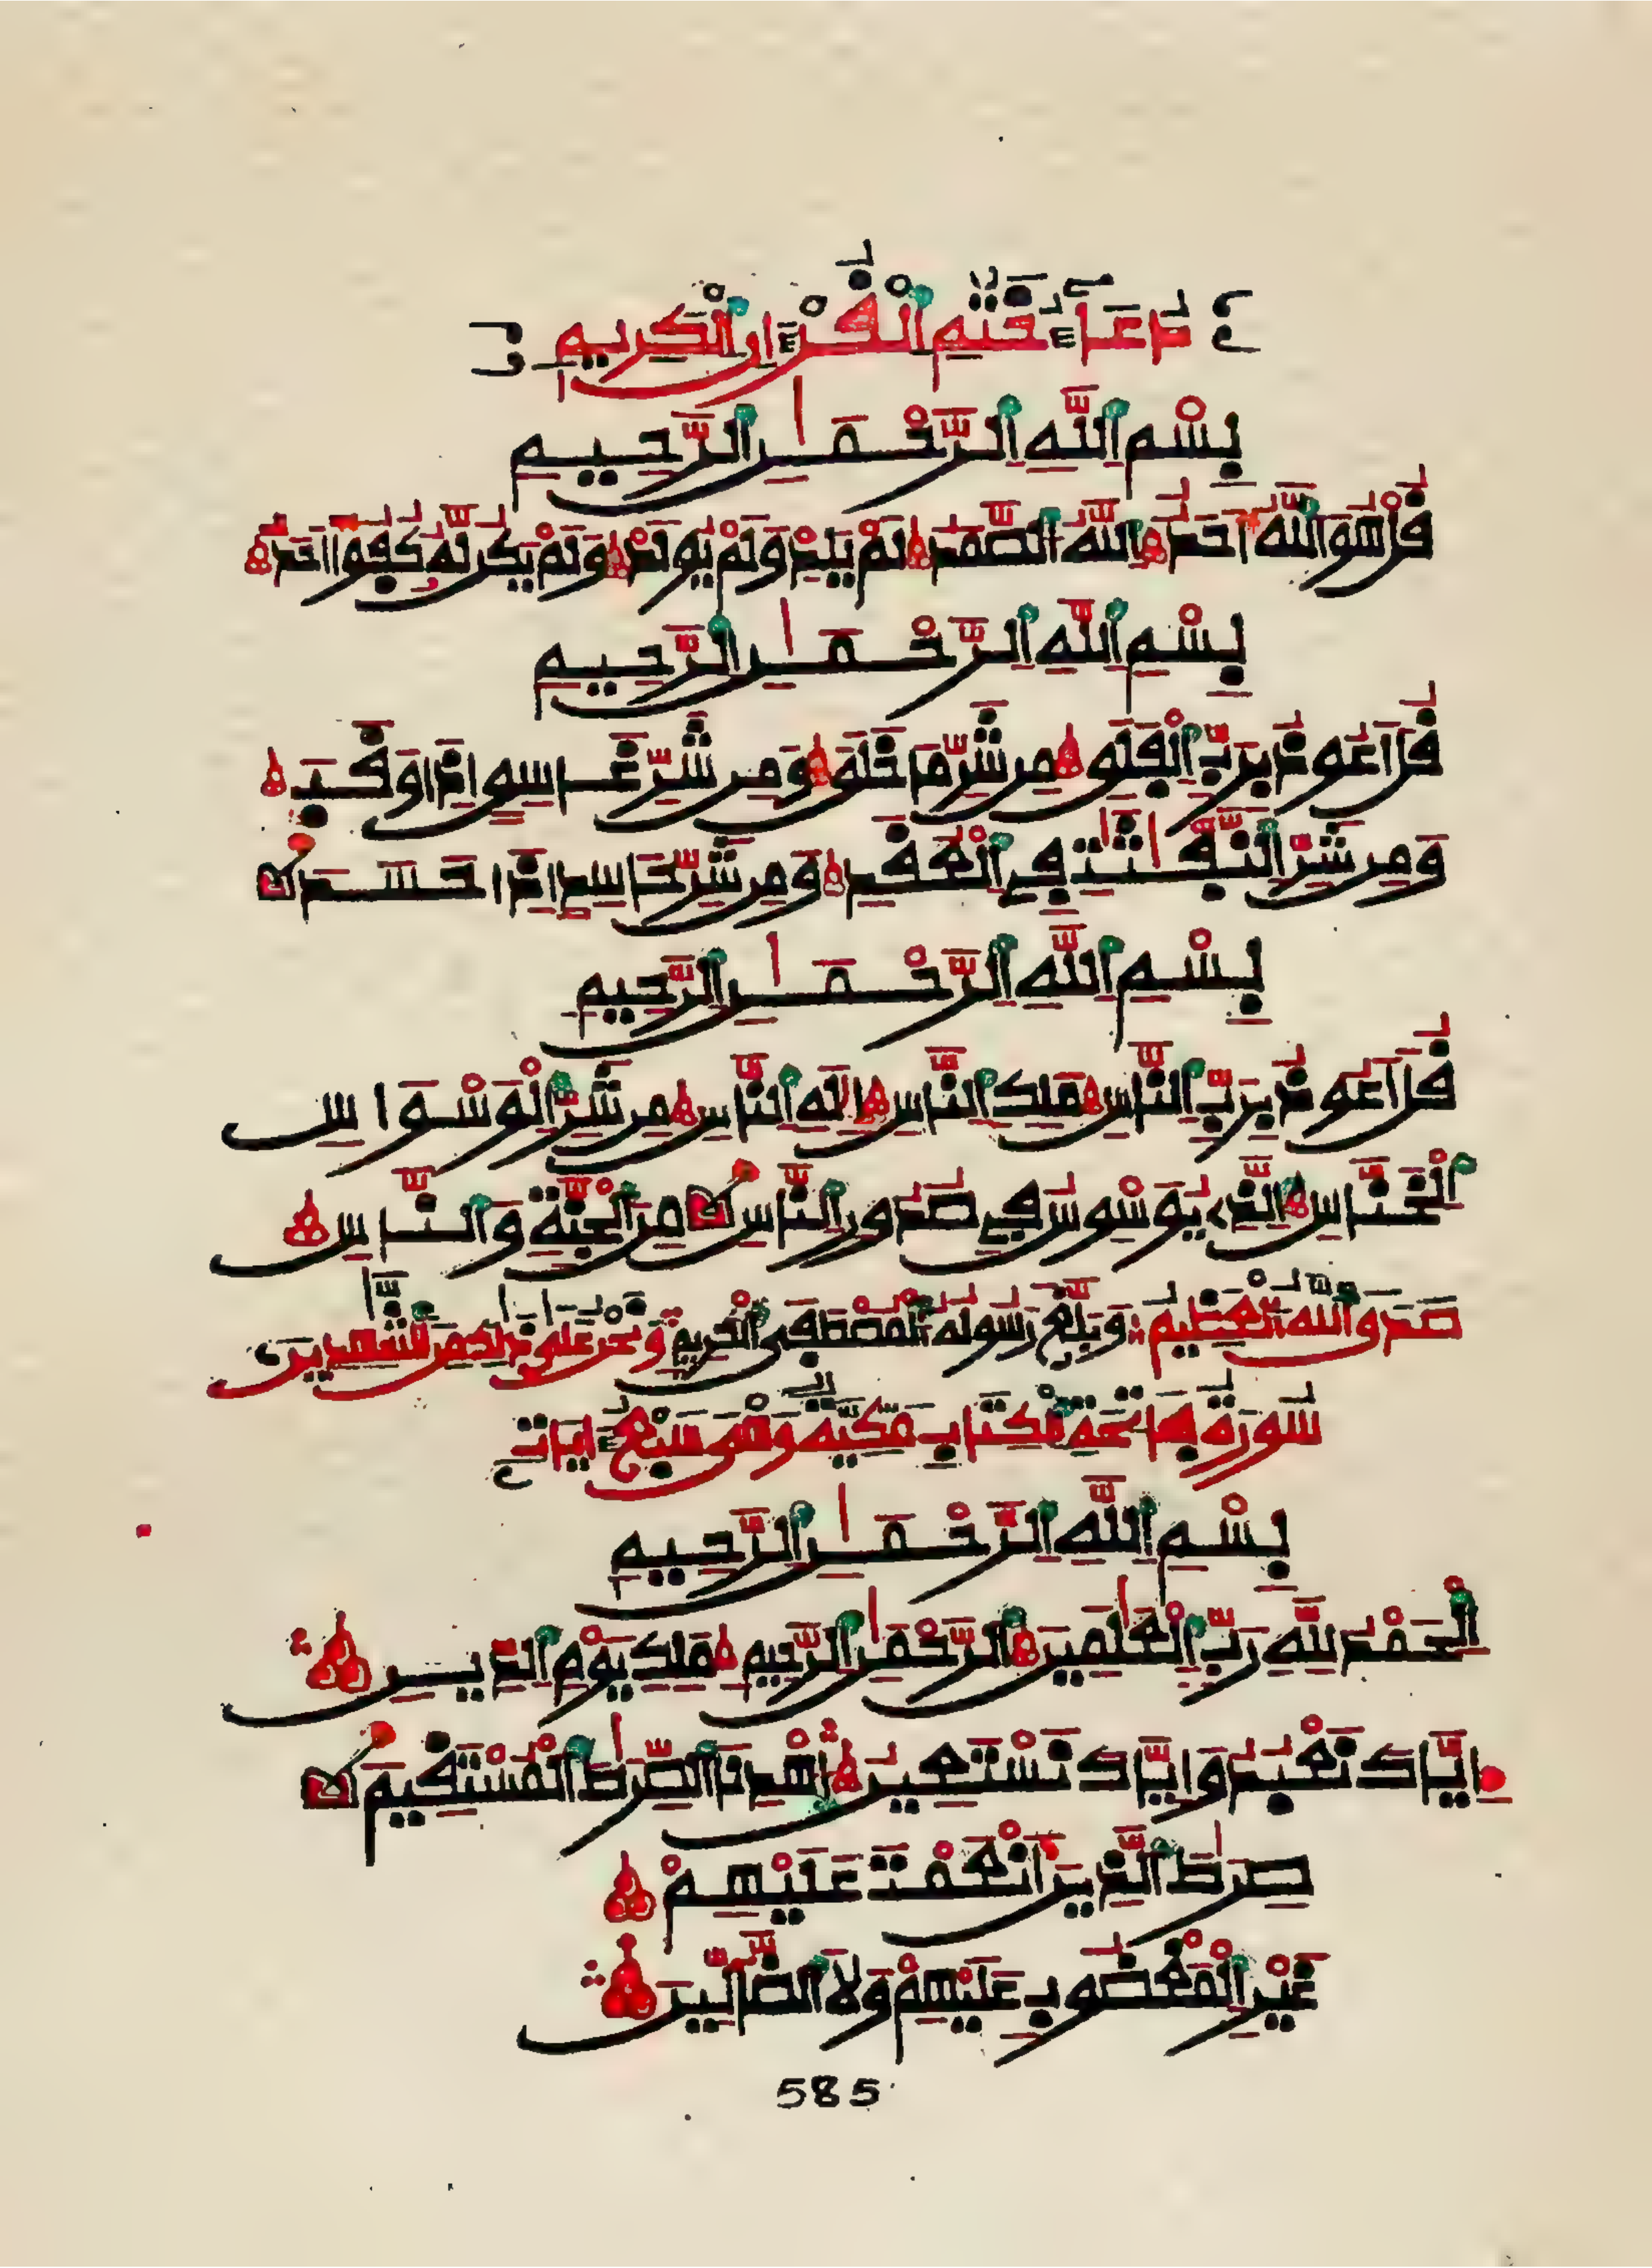 دُعَآءُ خَتْمِ اَلْقُرْءَانِ اَلْكَرِيمِ
بِسْمِ اِللَّهِ اِلرَّحْمَٰنِ اِلرَّحِيمِ
قُلْ هُوَ اَللَّهُ أَحَدٌ اَللَّهُ اُلصَّمَدُ لَمْ يَلِدْ وَلَمْ يُولَدْ وَلَمْ يَكُن لَّهُ كُفُوًا اَحَدٌ
بِسْمِ اِللَّهِ اِلرَّحْمَٰنِ اِلرَّحِيمِ
قُلَ اَعُوذُ بِرَبِّ اِلْفَلَقِ مِن شَرِّ مَا خَلَقَ وَمِن شَرِّ غَاسِقٍ اِذَا وَقَبَ
وَمِن شَرِّ اِلنَّفَّٰثَٰتِ فِي اِلْعُقَدِ وَمِن شَرِّ حَاسِدٍ اِذَا حَسَدَ
بِسْمِ اِللَّهِ اِلرَّحْمَٰنِ اِلرَّحِيمِ
قُلَ اَعُوذُ بِرَبِّ اِلنَّاسِ مَلِكِ اِلنَّاسِ إِلَٰهِ اِلنَّاسِ مِن شَرِّ اِلْوَسْوَاسِ
اِلْخَنَّاسِ اِلَّذِي يُوَسْوِسُ فِي صُدُورِ اِلنَّاسِ مِنَ اَلْجِنَّةِ وَالنَّاسِ
صَدَقَ اَللَّهُ اُلْعَظِيمُ وَبَلَّغَ رَسُولُهُ اُلْمُصْطَفَى اَلْكَرِيمُ وَنَحْنُ عَلَىٰ ذَٰلِكُم مِّنَ اَلشَّٰهِدِينَ
سُورَةُ فَاتِحَةِ اِلْكِتَابِ مَكِّيَّة وَهْيَ سَبْعُ ءَايَاتٍ
بِسْمِ اِللَّهِ اِلرَّحْمَٰنِ اِلرَّحِيمِ
اِلْحَمْدُ لِلَّهِ رَبِّ اِلْعَٰلَمِينَ اَلرَّحْمَٰنِ اِلرَّحِيمِ مَلِكِ يَوْمِ اِلدِّينِ
إِيَّاكَ نَعْبُدُ وَإِيَّاكَ نَسْتَعِينُ اُهْدِنَا اَلصِّرَٰطَ اَلْمُسْتَقِيمَ
صِرَٰطَ اَلَّذِينَ أَنْعَمْتَ عَلَيْهِمْ
غَيْرِ اِلْمَغْضُوبِ عَلَيْهِمْ وَلَا اَلضَّآلِّينَ
585